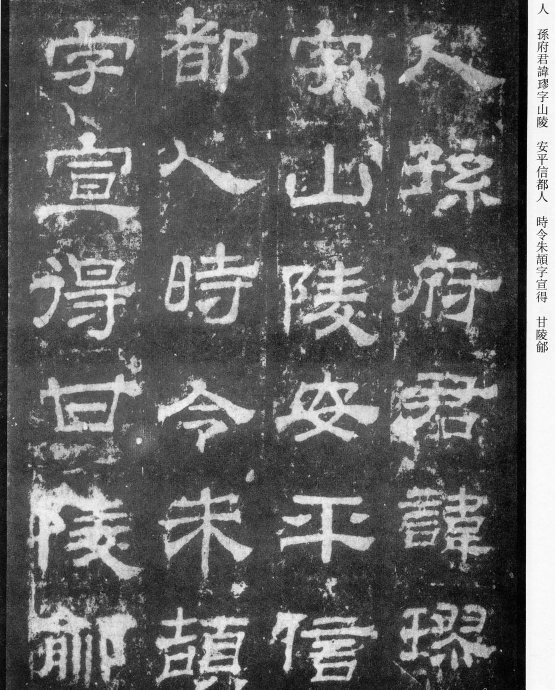 人孫府君諱璆
字山陵安平信
都人時令朱頡
字宣得甘陵鄃
人　孫府君諱璆字山陵　安平信都人　時令朱頡字宣得　甘陵鄃